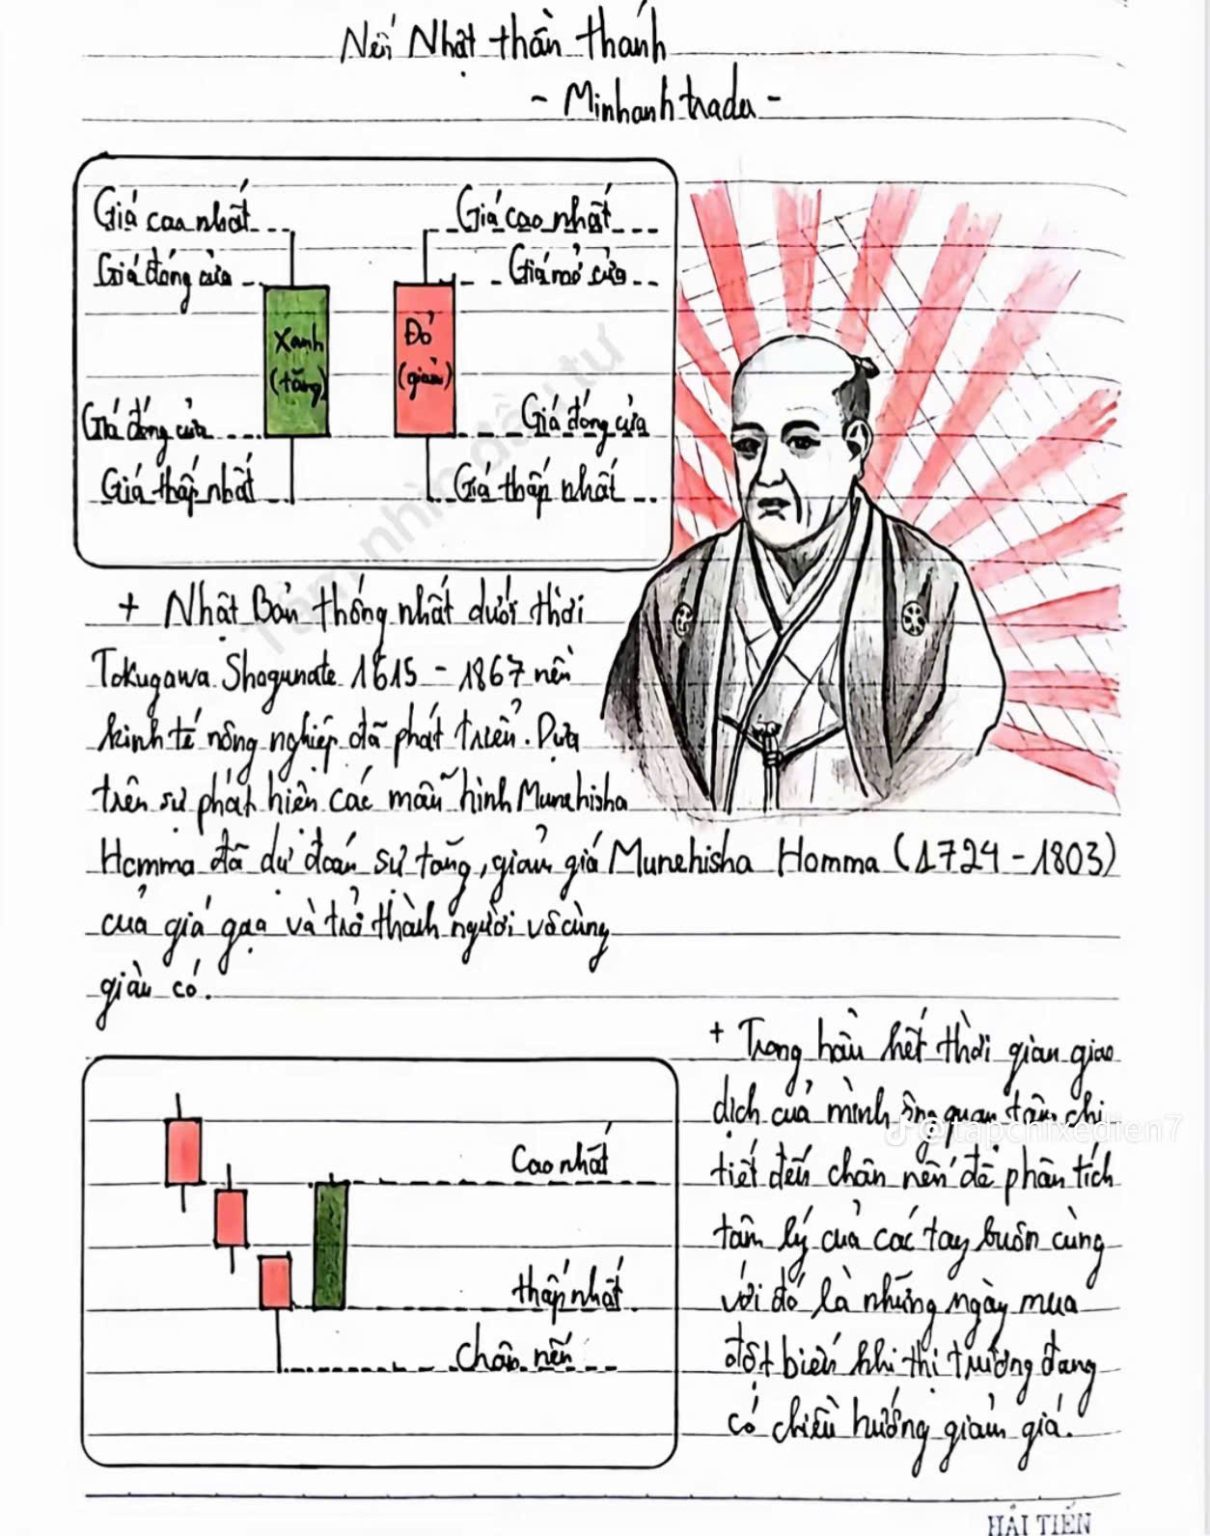 Nến Nhật thần thánh
- Minhanhtrader -
Giá cao nhất
Giá cao nhất
Giá đóng cửa
Giá mở cửa
Xanh
(tăng)
Đỏ
(giảm)
Giá đóng cửa
Giá đóng cửa
Giá thấp nhất
Giá thấp nhất
Tầm nhìn đầu tư
+ Nhật Bản thống nhất dưới thời
Tokugawa Shogunate 1615 - 1867 nền
kinh tế nông nghiệp đã phát triển. Dựa
trên sự phát hiện các mẫu hình Munehisha
Homma đã dự đoán sự tăng, giảm giá
của giá gạo và trở thành người vô cùng
giàu có.
Munehisha Homma (1724 - 1803)
+ Trong hầu hết thời gian giao
dịch của mình ông quan tâm chi
tiết đến chân nến để phân tích
tâm lý của các tay buôn cùng
với đó là những ngày mua
đột biến khi thị trường đang
có chiều hướng giảm giá.
Cao nhất
thấp nhất
Chân nến
@tapchixedien7
HẢI TIẾN